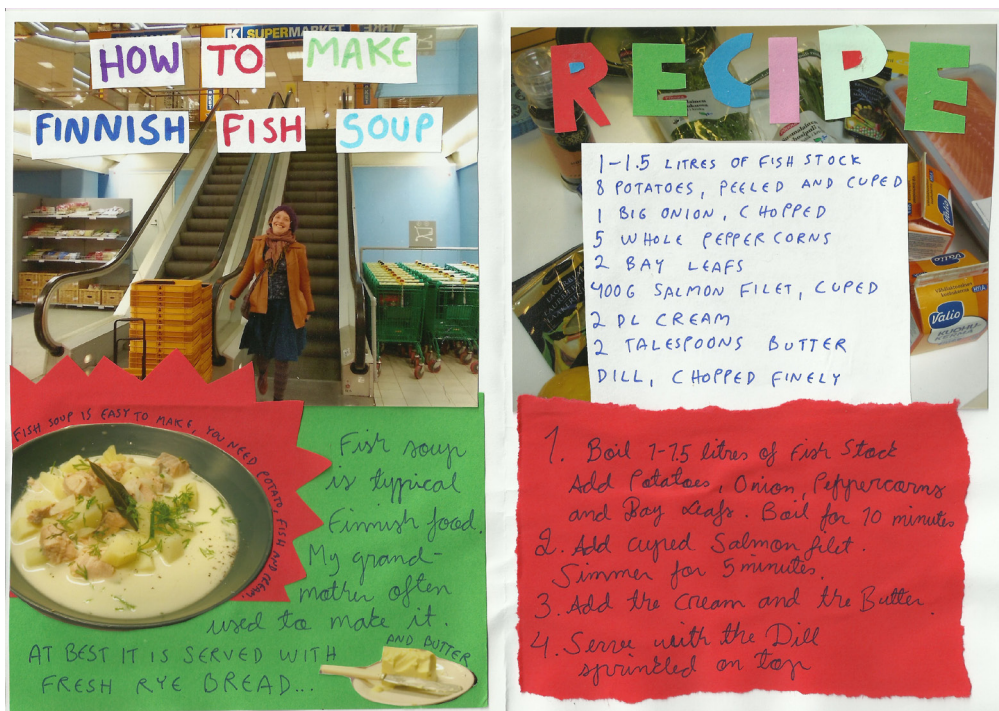 K SUPERMARKET
HOW TO MAKE
FINNISH FISH SOUP
FISH SOUP IS EASY TO MAKE, YOU NEED POTATO, FISH AND CREAM.
Fish soup
is typical
Finnish food.
My grand-
mother often
used to make it.
AT BEST IT IS SERVED WITH
FRESH RYE BREAD...
AND BUTTER
RECIPE
1-1.5 LITRES OF FISH STOCK
8 POTATOES, PEELED AND CUPED
1 BIG ONION, CHOPPED
5 WHOLE PEPPERCORNS
2 BAY LEAFS
400G SALMON FILET, CUPED
2 DL CREAM
2 TALESPOONS BUTTER
DILL, CHOPPED FINELY
Valio
Valio
Valio
KUOHU-
1. Boil 1-1.5 litres of Fish Stock
Add Potatoes, Onion, Peppercorns
and Bay Leafs. Boil for 10 minutes
2. Add cuped Salmon filet.
Simmer for 5 minutes.
3. Add the Cream and the Butter.
4. Serve with the Dill
sprinkled on top